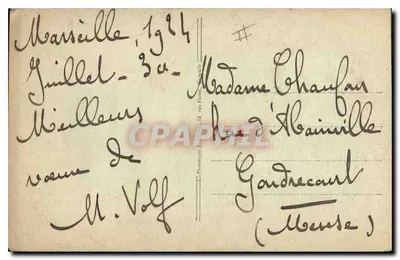 Marseille, 1924
Juillet - 30
Meilleurs
voeux de
M. Volf
Madame Chaufour
Rue d'Abainville
Gondrecourt
(Meuse)
CPARAMA.COM